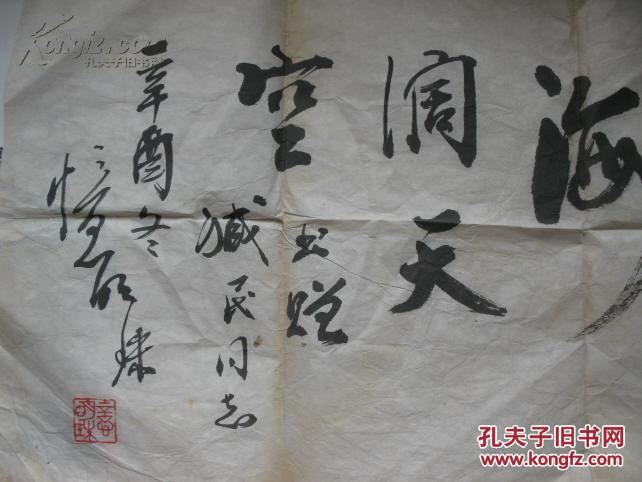 海
阔天
空
书赠
臧民同志
辛酉冬
明珠
Kongfz.com
孔夫子旧书网
孔夫子旧书网
www.kongfz.com